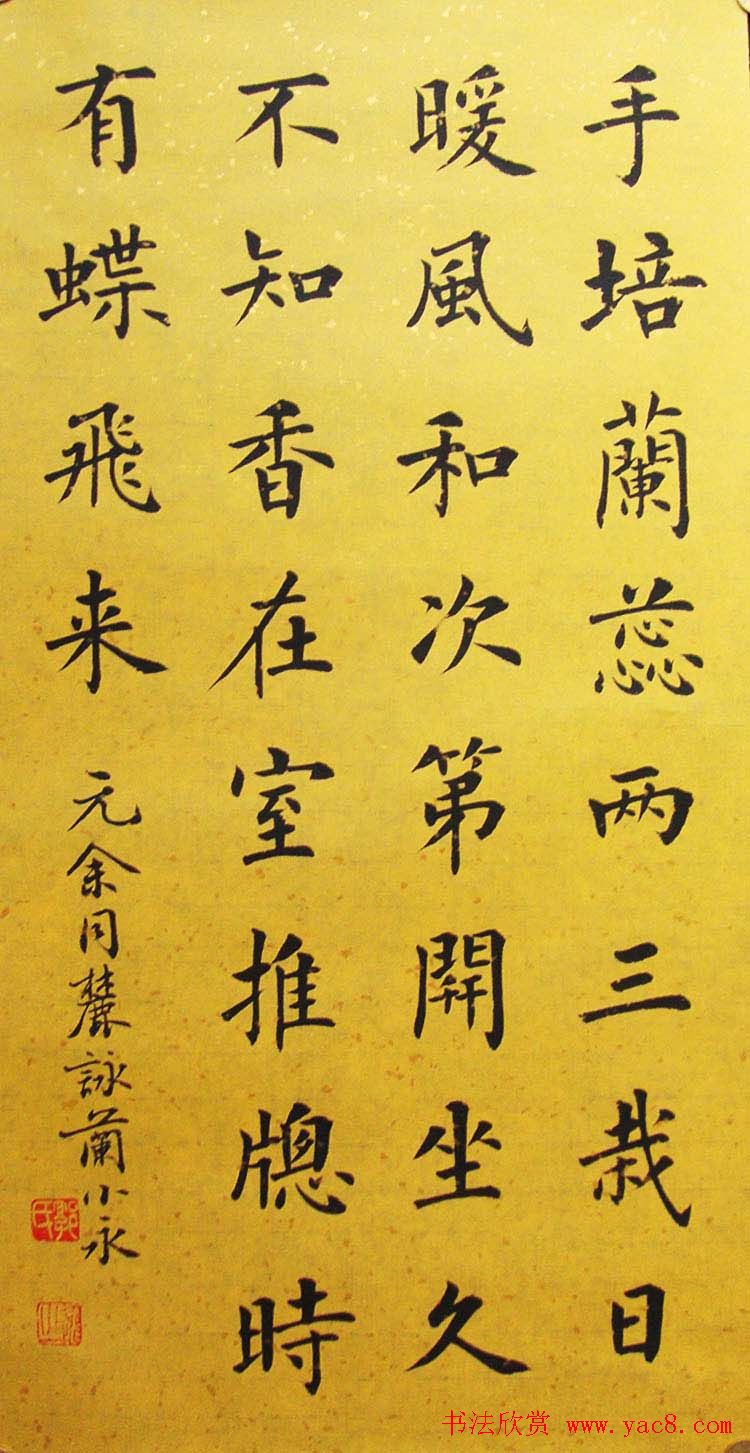 手培蘭蕊两三栽日
暖風和次第開坐久
不知香在室推牕時
有蝶飛来
元余同麓詠蘭小永
书法欣赏 www.yac8.com